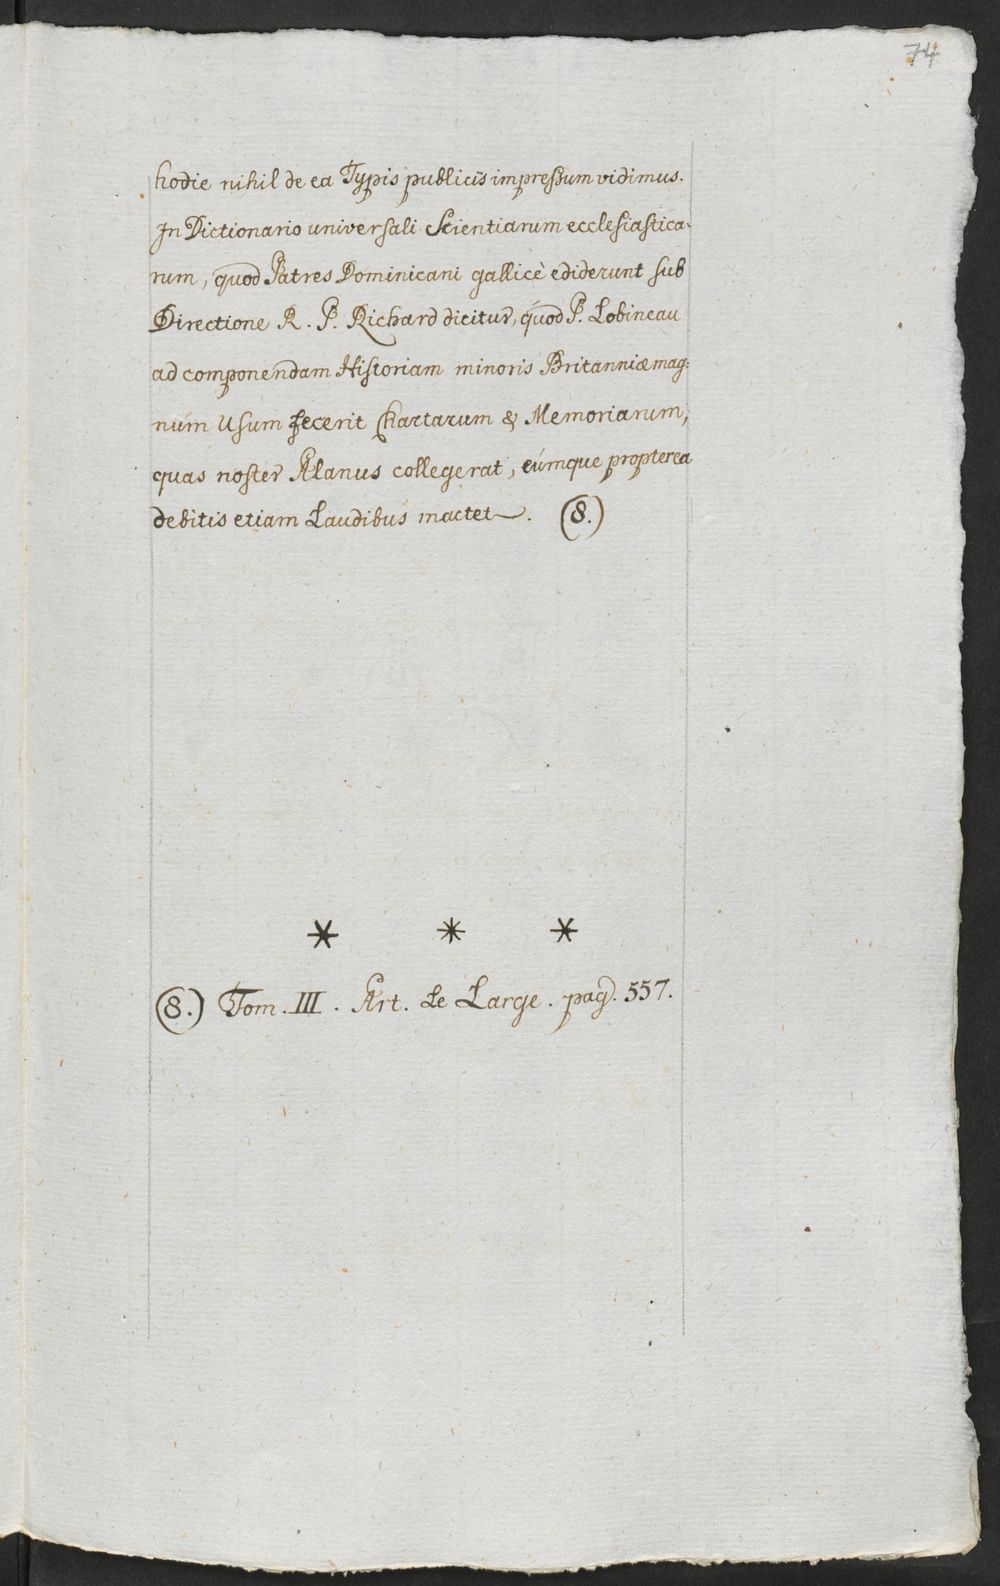 74
hodie nihil de ea Typis publicis impreßum vidimus.
In Dictionario universali Scientiarum ecclesiastica-
rum, quod Patres Dominicani gallicè ediderunt sub
Directione R. P. Richard dicitur, quod P. Lobineau
ad componendam Historiam minoris Britanniæ mag-
num Usum fecerit Chartarum & Memoriarum,
quas noster Alanus collegerat, eúmque propterea
debitis etiam Laudibus mactet. (8.)
* * *
(8.) Tom. III. Art. Le Large. pag. 557.